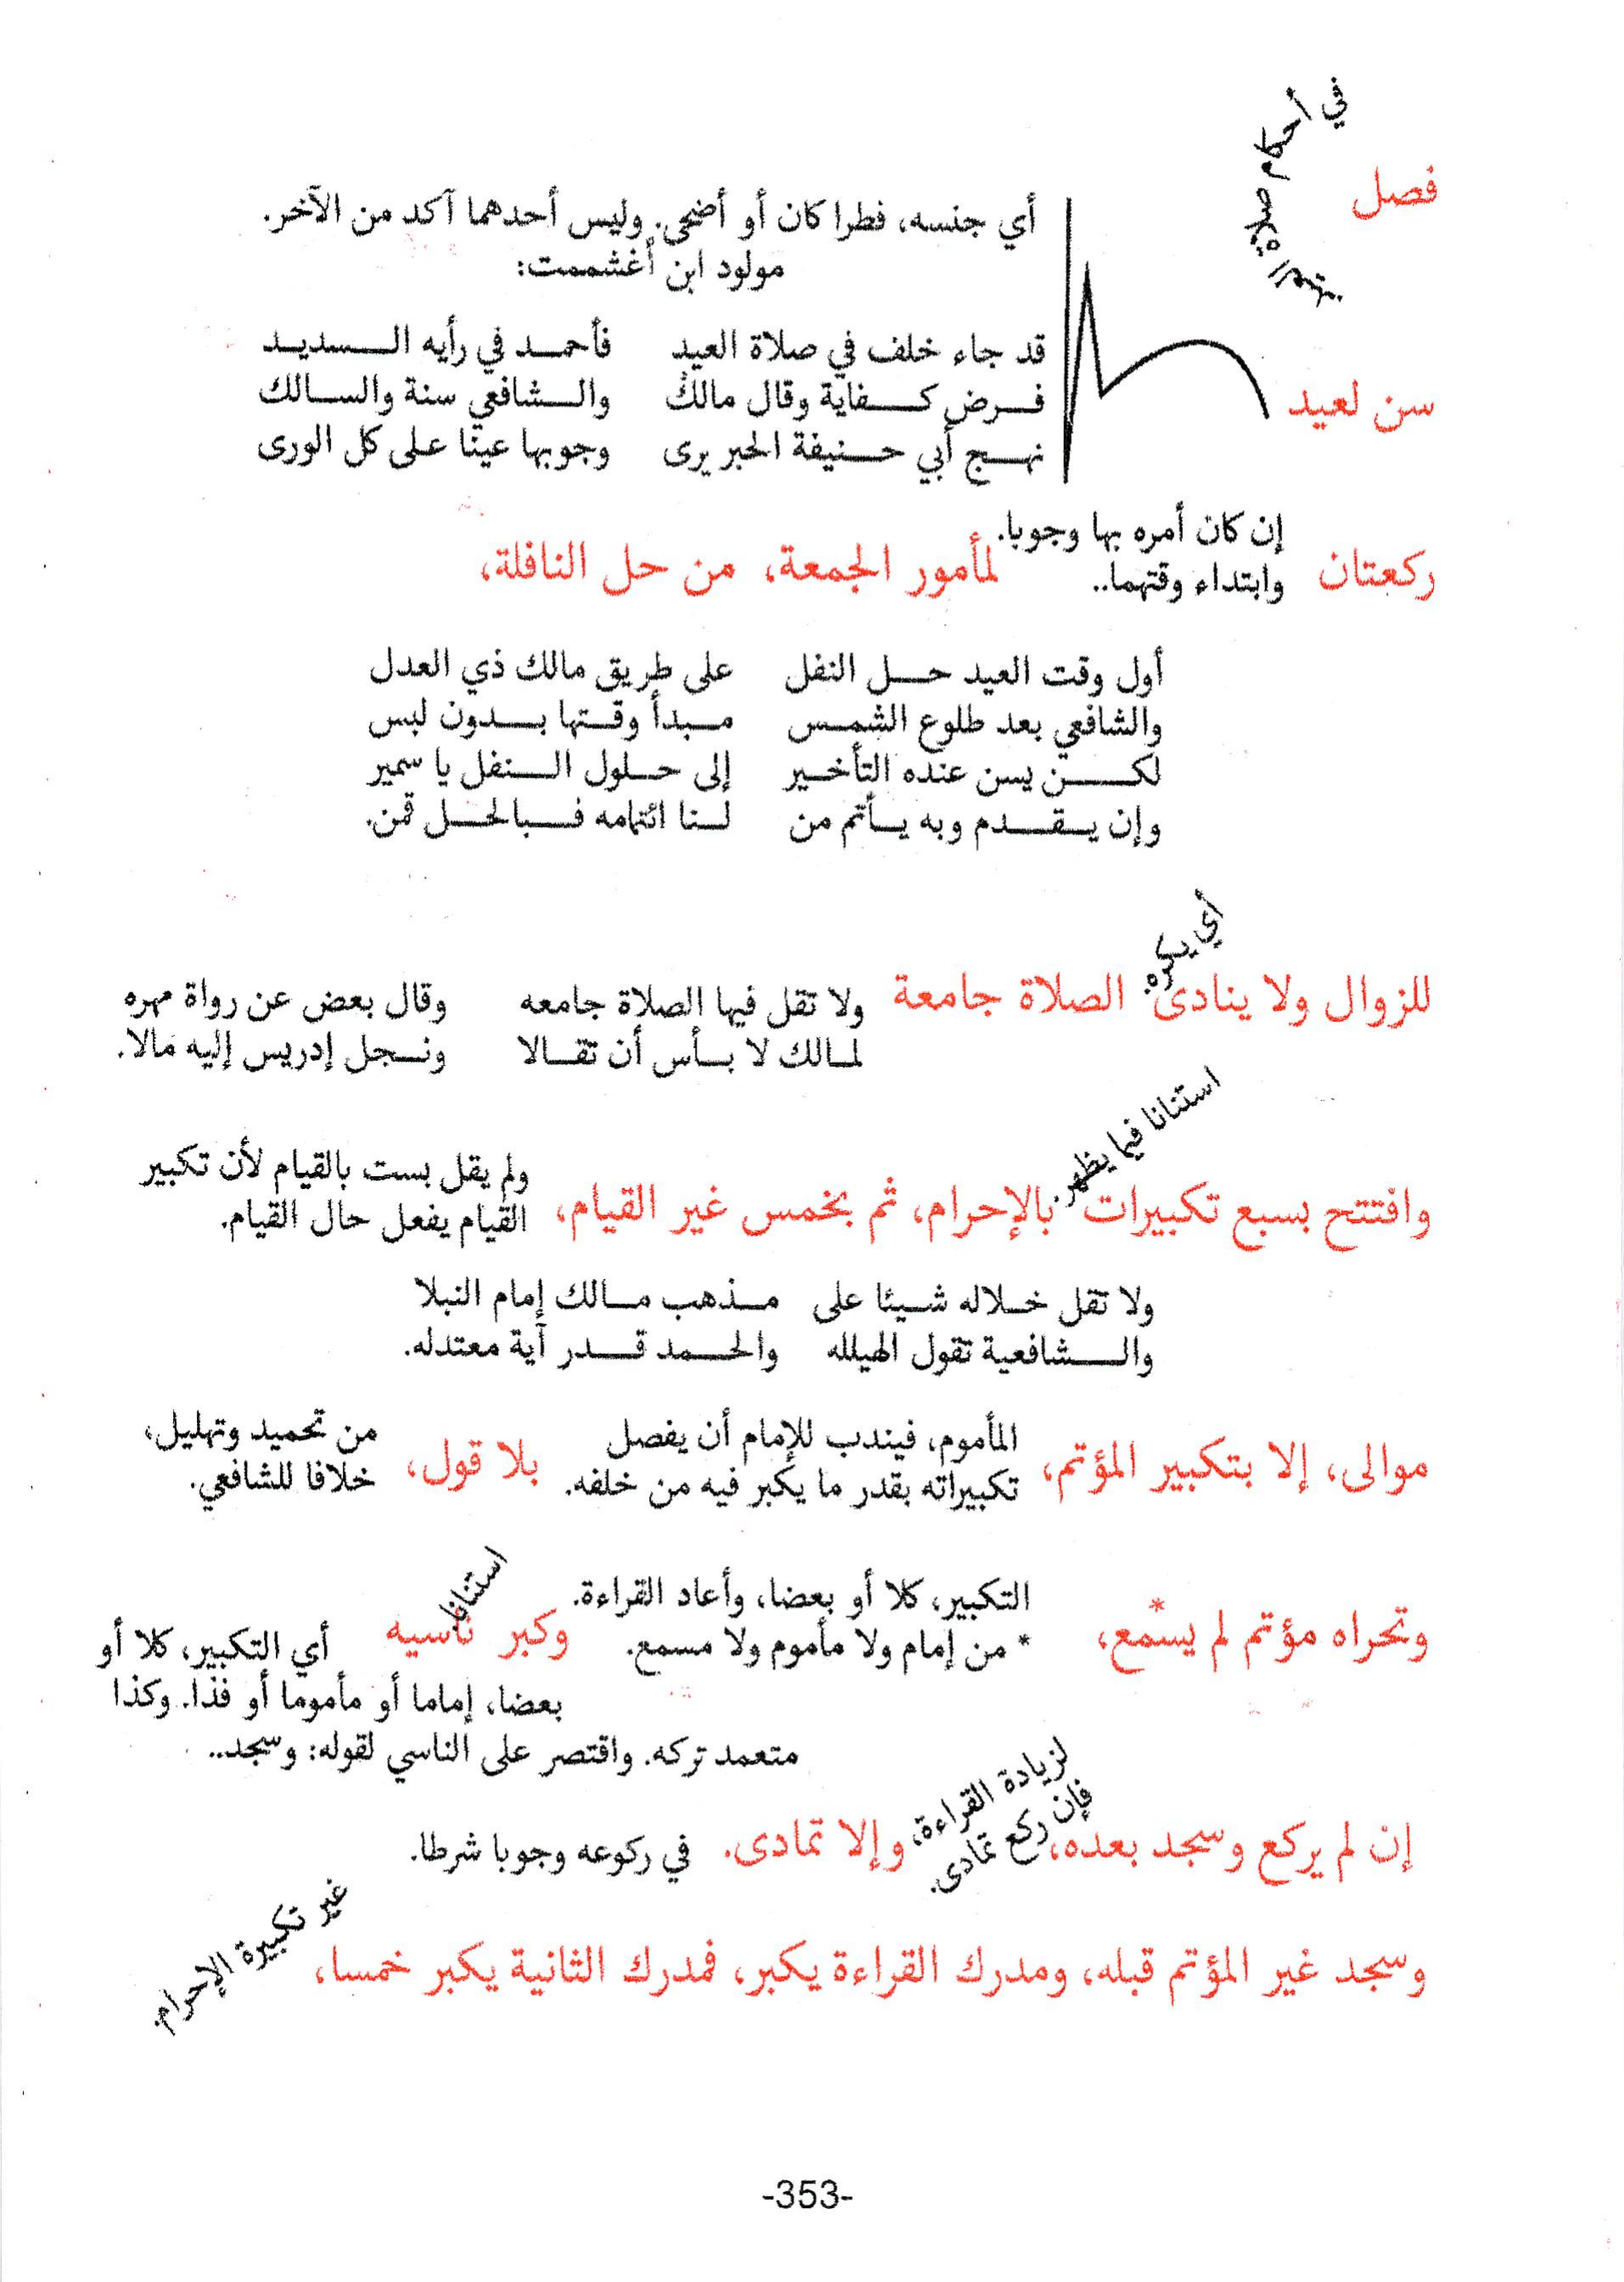 فصل
في أحكام صلاة العيد.
أي جنسه، فطرا كان أو أضحى. وليس أحدهما آكد من الآخر.
مولود ابن أغشممت:
سن لعيد
قد جاء خلف في صلاة العيد فأحمد في رأيه السديد
فرض كفاية وقال مالك والشافعي سنة والسالك
نهج أبي حنيفة الحبر يرى وجوبها عينا على كل الورى
ركعتان
إن كان أمره بها وجوبا.
وابتداء وقتهما..
لمأمور الجمعة، من حل النافلة،
أول وقت العيد حل النفل على طريق مالك ذي العدل
والشافعي بعد طلوع الشمس مبدأ وقتها بدون لبس
لكن يسن عنده التأخير إلى حلول النفل يا سمير
وإن يقدم وبه يأتم من لنا ائتمامه فبالحل قمن.
للزوال ولا ينادى
أي يكره.
الصلاة جامعة
ولا تقل فيها الصلاة جامعه وقال بعض عن رواة مهره
لمالك لا بأس أن تقالا ونجل إدريس إليه مالا.
وافتتح بسبع تكبيرات
استنانا فيما يظهر.
بالإحرام، ثم بخمس غير القيام،
ولم يقل بست بالقيام لأن تكبير
القيام يفعل حال القيام.
ولا تقل خلاله شيئا على مذهب مالك إمام النبلا
والشافعية تقول الهيلله والحمد قدر آية معتدله.
موالى، إلا بتكبير المؤتم،
المأموم، فيندب للإمام أن يفصل
تكبيراته بقدر ما يكبر فيه من خلفه.
بلا قول،
من تحميد وتهليل،
خلافا للشافعي.
وتحراه مؤتم لم يسمع*،
التكبير، كلا أو بعضا، وأعاد القراءة.
* من إمام ولا مأموم ولا مسمع.
وكبر ناسيه
استنانا.
أي التكبير، كلا أو
بعضا، إماما أو مأموما أو فذا. وكذا
متعمد تركه. واقتصر على الناسي لقوله: وسجد..
إن لم يركع وسجد بعده،
لزيادة القراءة،
فإن ركع تمادى.
وإلا تمادى.
في ركوعه وجوبا شرطا.
وسجد غير المؤتم قبله، ومدرك القراءة يكبر، فمدرك الثانية يكبر خمسا،
غير تكبيرة الإحرام.
-353-